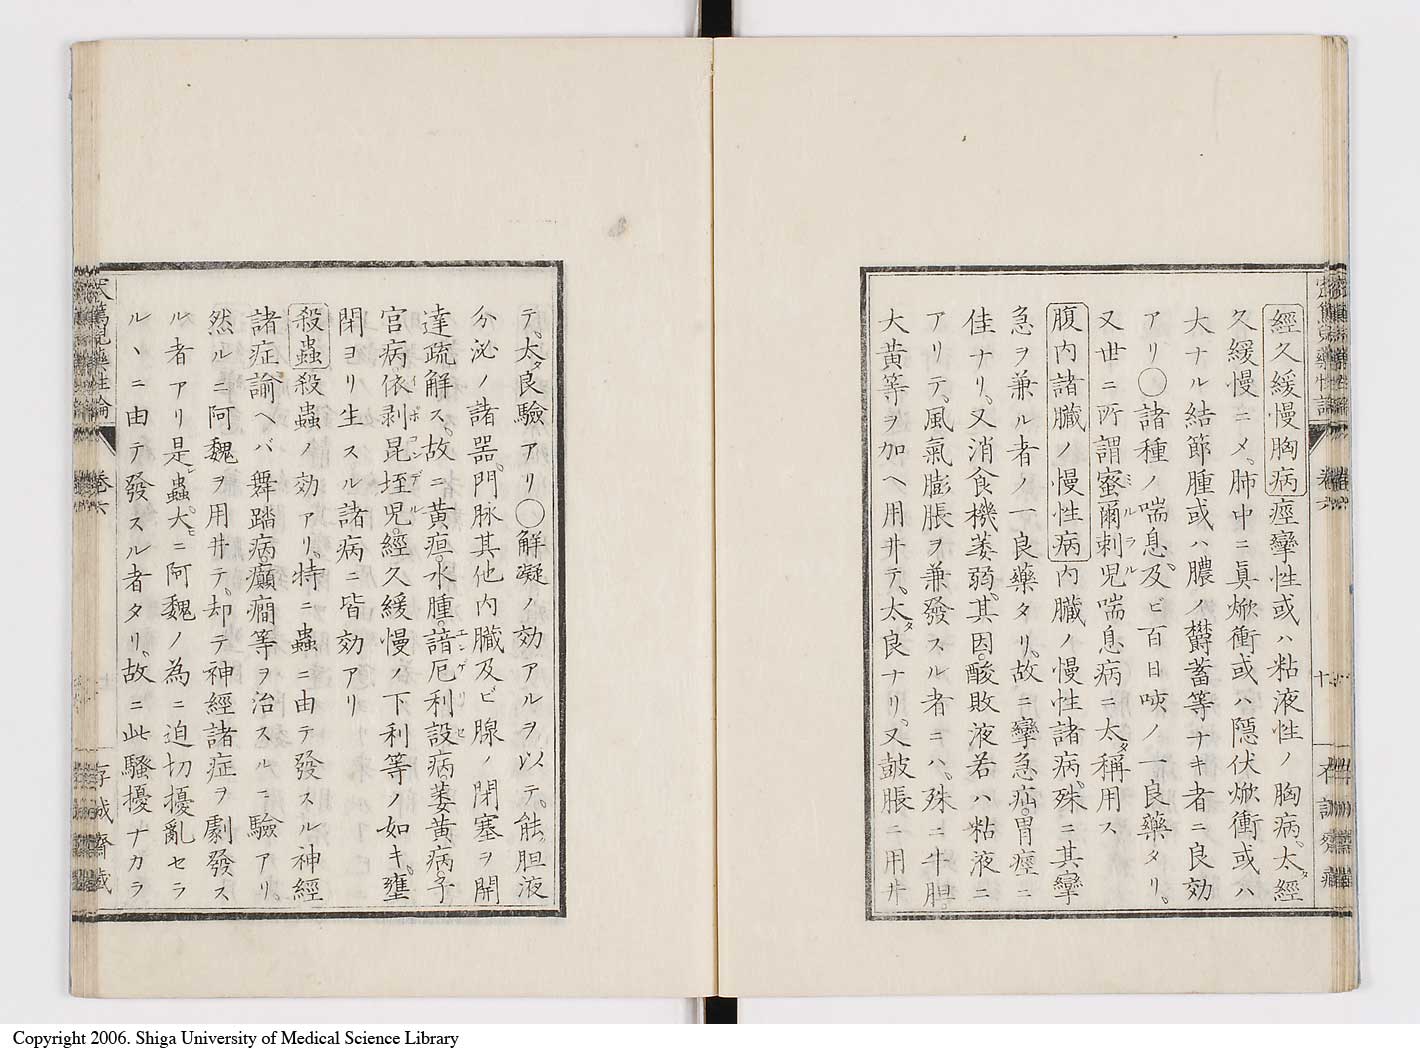 經久緩慢胸病 痙攣性或ハ粘液性ノ胸病。太タ經
久緩慢ニメ。肺中ニ眞焮衝或ハ隠伏焮衝或ハ
大ナル結節腫或ハ膿ノ欝蓄等ナキ者ニ良効
アリ○諸種ノ喘息。及ビ百日咳ノ一良藥タリ。
又世ニ所謂蜜爾刺児喘息病ニ太タ稱用ス
ミルラル
腹内諸臓ノ慢性病 内臓ノ慢性諸病。殊ニ其攣
急ヲ兼ル者ノ一良藥タリ。故ニ攣急疝。胃痙ニ
佳ナリ。又消食機萎弱。其因。酸敗液若ハ粘液ニ
アリテ。風氣膨脹ヲ兼發スル者ニハ。殊ニ牛胆。
大黄等ヲ加ヘ用井テ。太タ良ナリ。又鼓脹ニ用井
卷六
十
テ。太タ良驗アリ○解凝ノ効アルヲ以テ。能胆液
分泌ノ諸器。門脉其他内臓及ビ腺ノ閉塞ヲ開
達疏解ス。故ニ黄疸。水腫。諳厄利設病。萎黄病。子
エンゲリセ
官病依剥昆垤児。經久緩慢ノ下利等ノ如キ。壅
イポコンデル
閉ヨリ生スル諸病ニ皆効アリ
殺蟲 殺蟲ノ効アリ。特ニ蟲ニ由テ發スル神經
諸症諭ヘバ舞踏病。癲癇等ヲ治スルニ驗アリ。
然ルニ阿魏ヲ用井テ。却テ神經諸症ヲ劇發ス
ル者アリ是蟲。大ヒニ阿魏ノ為ニ迫切擾亂セラ
ルヽニ由テ發スル者タリ。故ニ此騷擾ナカラ
卷六
存誠齋藏
Copyright 2006. Shiga University of Medical Science Library